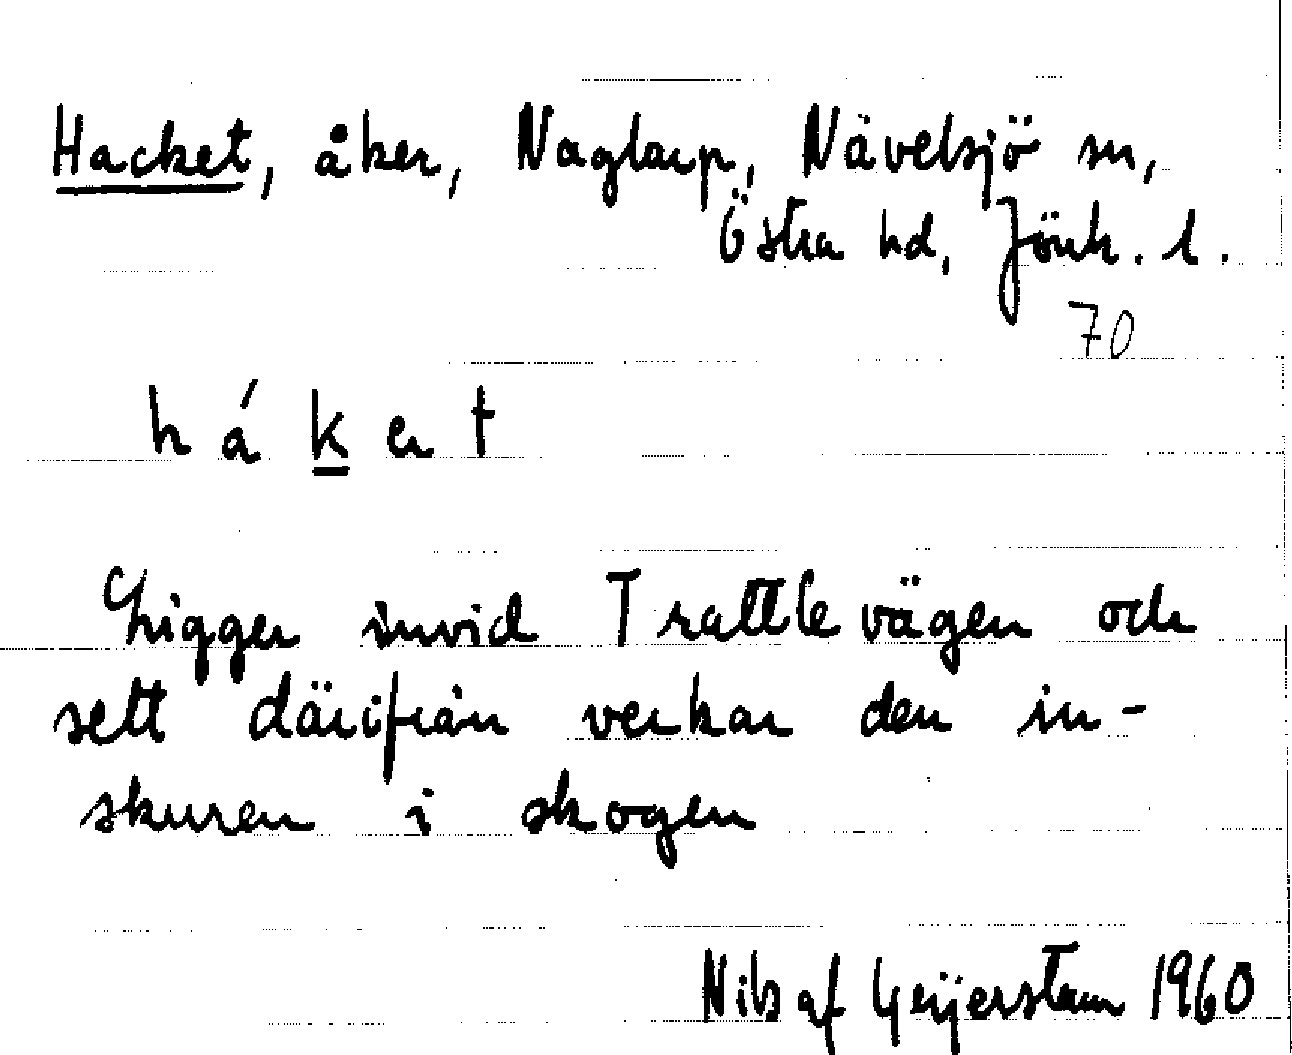 Hacket, åker, Naglarp, Nävelsjö sn,
Östra hd, Jönk. l.
70
h á k e t
Ligger invid Trattlevägen och
sett därifrån verkar den in-
skuren i skogen
Nils af Geijerstam 1960